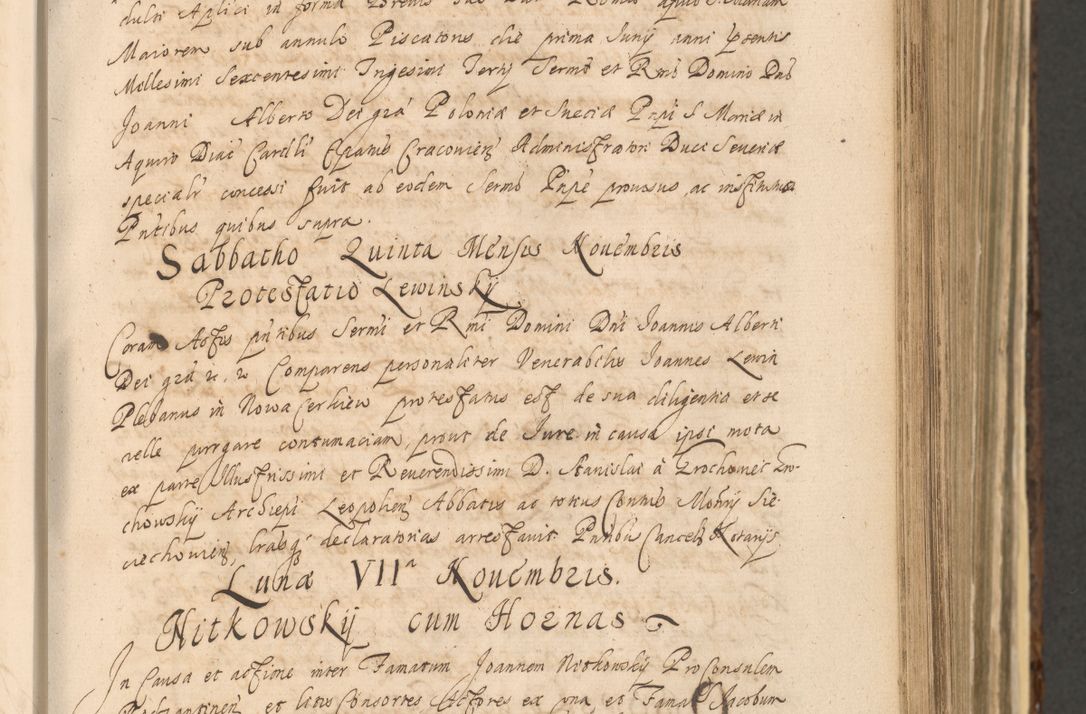 dulti Aplici in forma Brevis sub Dat Romæ apud S. Mariam
Maiorem sub annulo Piscatoris die prima Junij anni pñtis
Millesimi Sexcentesimi Trigesimi Tertij Sermo et Rmo Domino Dno
Joanni Alberto Dei grã Poloniæ et Sueciæ Prpi S Mariæ in
Aquiro Diac Cardli Epatus Cracovien Administratori Duci Severiæ
specialr concessi fuit ab eodem Sermo Prpe provisus, ac institutus
Pñtibus quibus supra.
Sabbatho Quinta Mensis Novembris
Protestatio Lewinskij
Coram Actis pñtibus Sermi et Rmi Domini Dni Joannis Alberti
Dei grã &c. &c Comparens personaliter Venerabilis Joannes Lewin
Plebanus in Nowa Cerkiew protestatus est de sua diligentia et se
velle purgare contumaciam, prout de Jure in causa ipsi mota
ex parte Illustrissimi et Reverendissimi D. Stanislai à Grochowic Gro-
chowskij Archiepi Leopolien Abbatis ac totius Contus Monrij Sie-
ciechovien, lrasq declaratorias arrestavit Pntibus Cancell Notarijs
Lunæ VIIa Novembris.
Nitkowskij cum Hoznas
In Causa et actione inter Famatum Joannem Nitkowskij ProConsulem
et latus Consortes Actores ex una, et Famatũ Jacobum